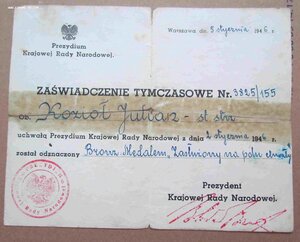 Prezydium
Krajowej Rady Narodowej.
Warszawa dn. 5 stycznia 1946 r.
ZAŚWIADCZENIE TYMCZASOWE Nr. 3825/155
ob. Kozioł Julian - st. strz.
uchwałą Prezydium Krajowej Rady Narodowej z dnia 2 stycznia 1946 r.
został odznaczony Bronz. Medalem „Zasłużony na polu chwały"
Prezydent
Krajowej Rady Narodowej.